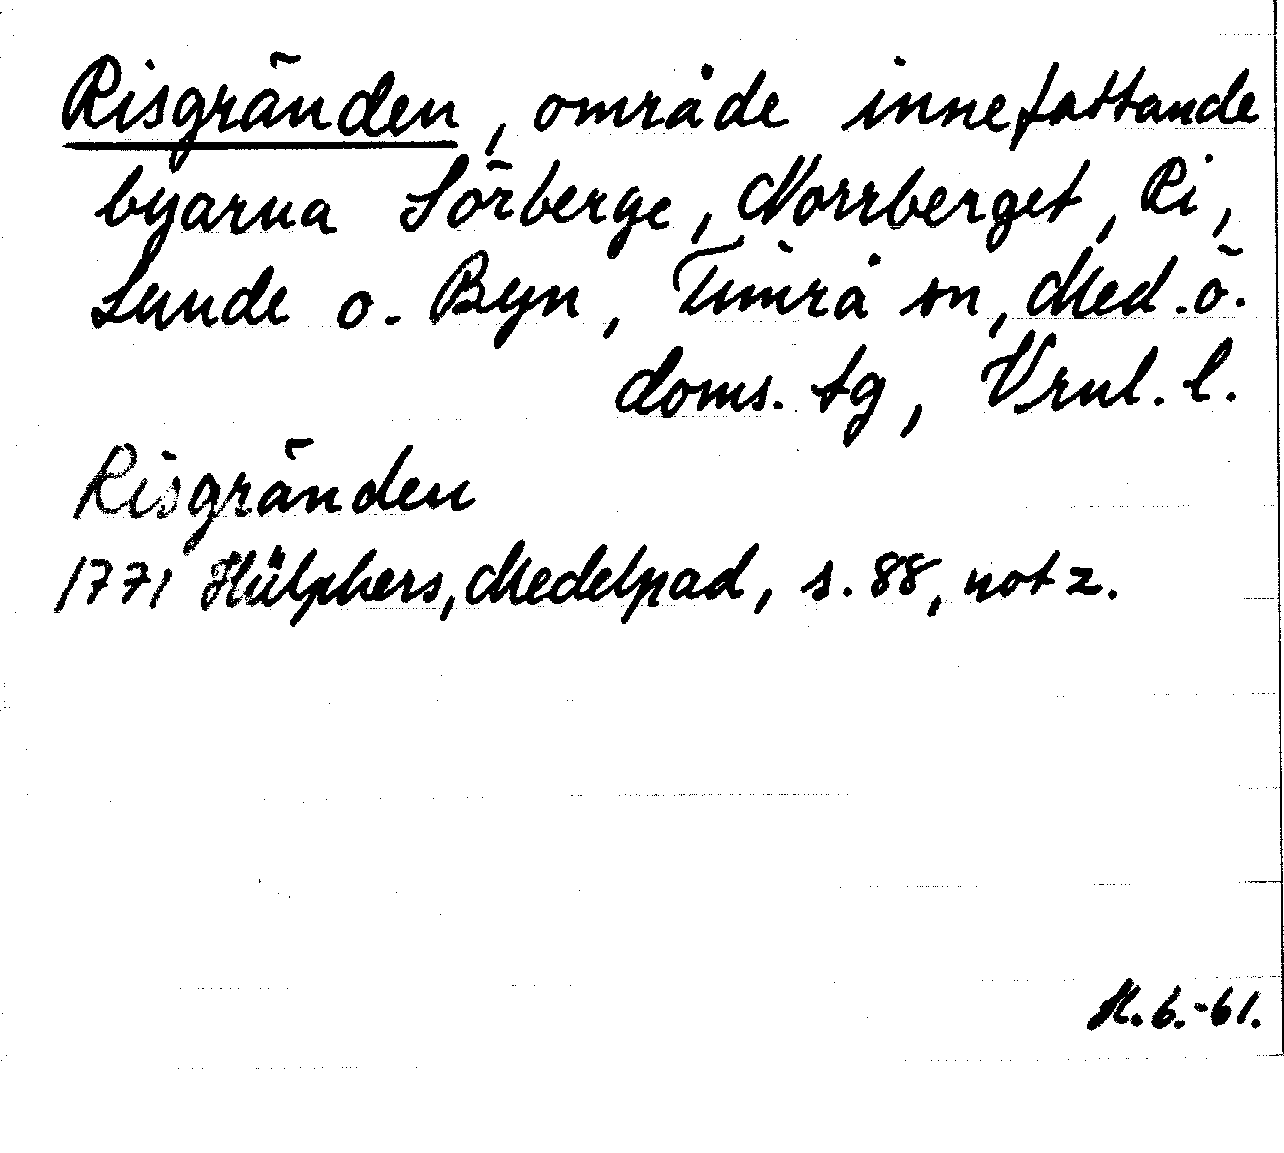 Risgränden, område innefattande
byarna Sörberge, Norrberget, Ri,
Lunde o. Byn, Timrå sn, Med. ö.
doms. tg, Vrnl. l.
Risgränden
1771 Hülphers, Medelpad, s. 88, not z.
6.-61.